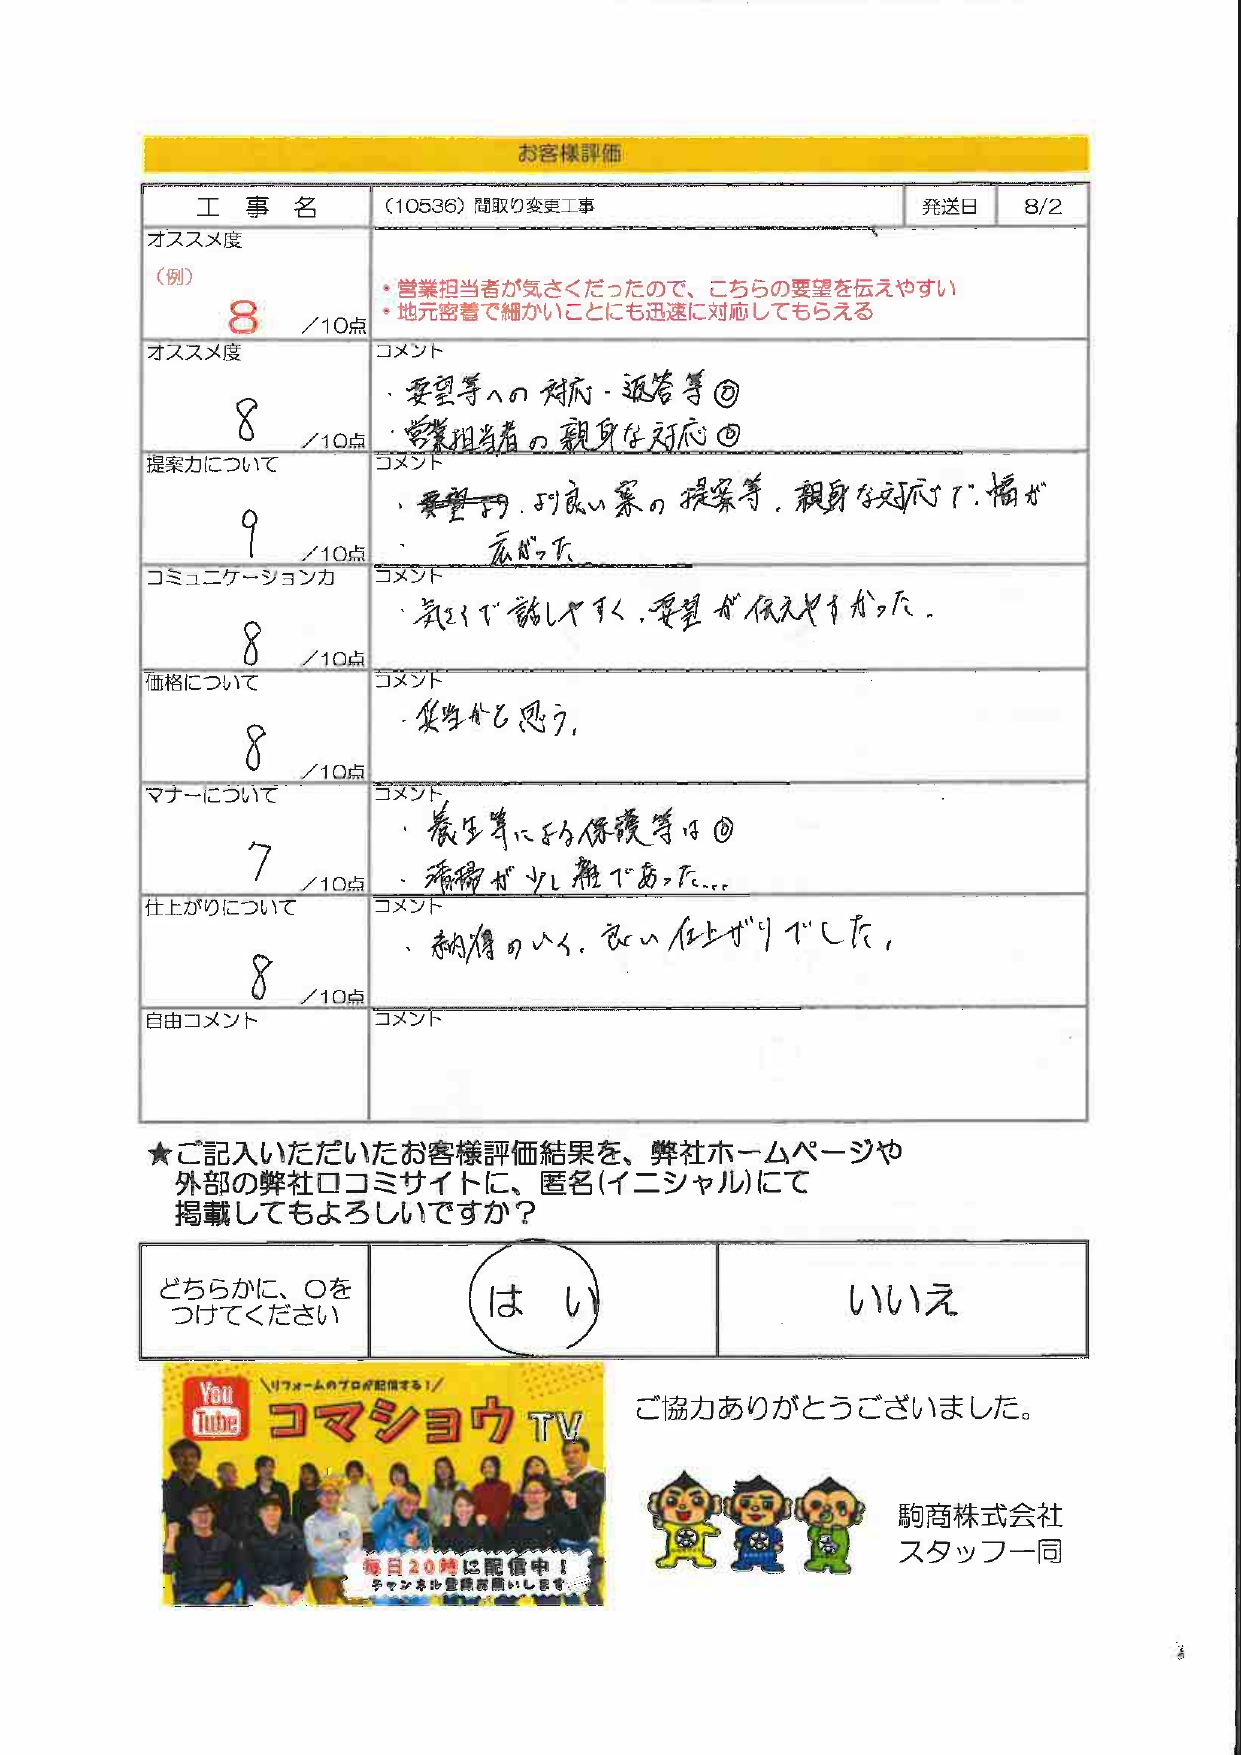 お客様評価
工事名 （10536）間取り変更工事 発送日 8/2
オススメ度
（例）
8 ／10点
・営業担当者が気さくだったので、こちらの要望を伝えやすい
・地元密着で細かいことにも迅速に対応してもらえる
オススメ度
8 ／10点
コメント
・要望等への対応・返答等◎
・営業担当者の親身な対応◎
提案力について
9 ／10点
コメント
・より良い案の提案等、親身な対応で、幅が
広がった
コミュニケーション力
8 ／10点
コメント
・気さくで話しやすく、要望が伝えやすかった。
価格について
8 ／10点
コメント
・妥当かと思う。
マナーについて
7 ／10点
コメント
・養生等による保護等は◎
・清掃が少し雑であった...
仕上がりについて
8 ／10点
コメント
・納得のいく、良い仕上がりでした。
自由コメント
コメント
★ご記入いただいたお客様評価結果を、弊社ホームページや
外部の弊社口コミサイトに、匿名(イニシャル)にて
掲載してもよろしいですか？
どちらかに、〇を
つけてください
はい
いいえ
You
Tube
＼リフォームのプロが配信する！／
コマショウTV
毎日20時に配信中！
チャンネル登録お願いします
ご協力ありがとうございました。
駒商株式会社
スタッフ一同